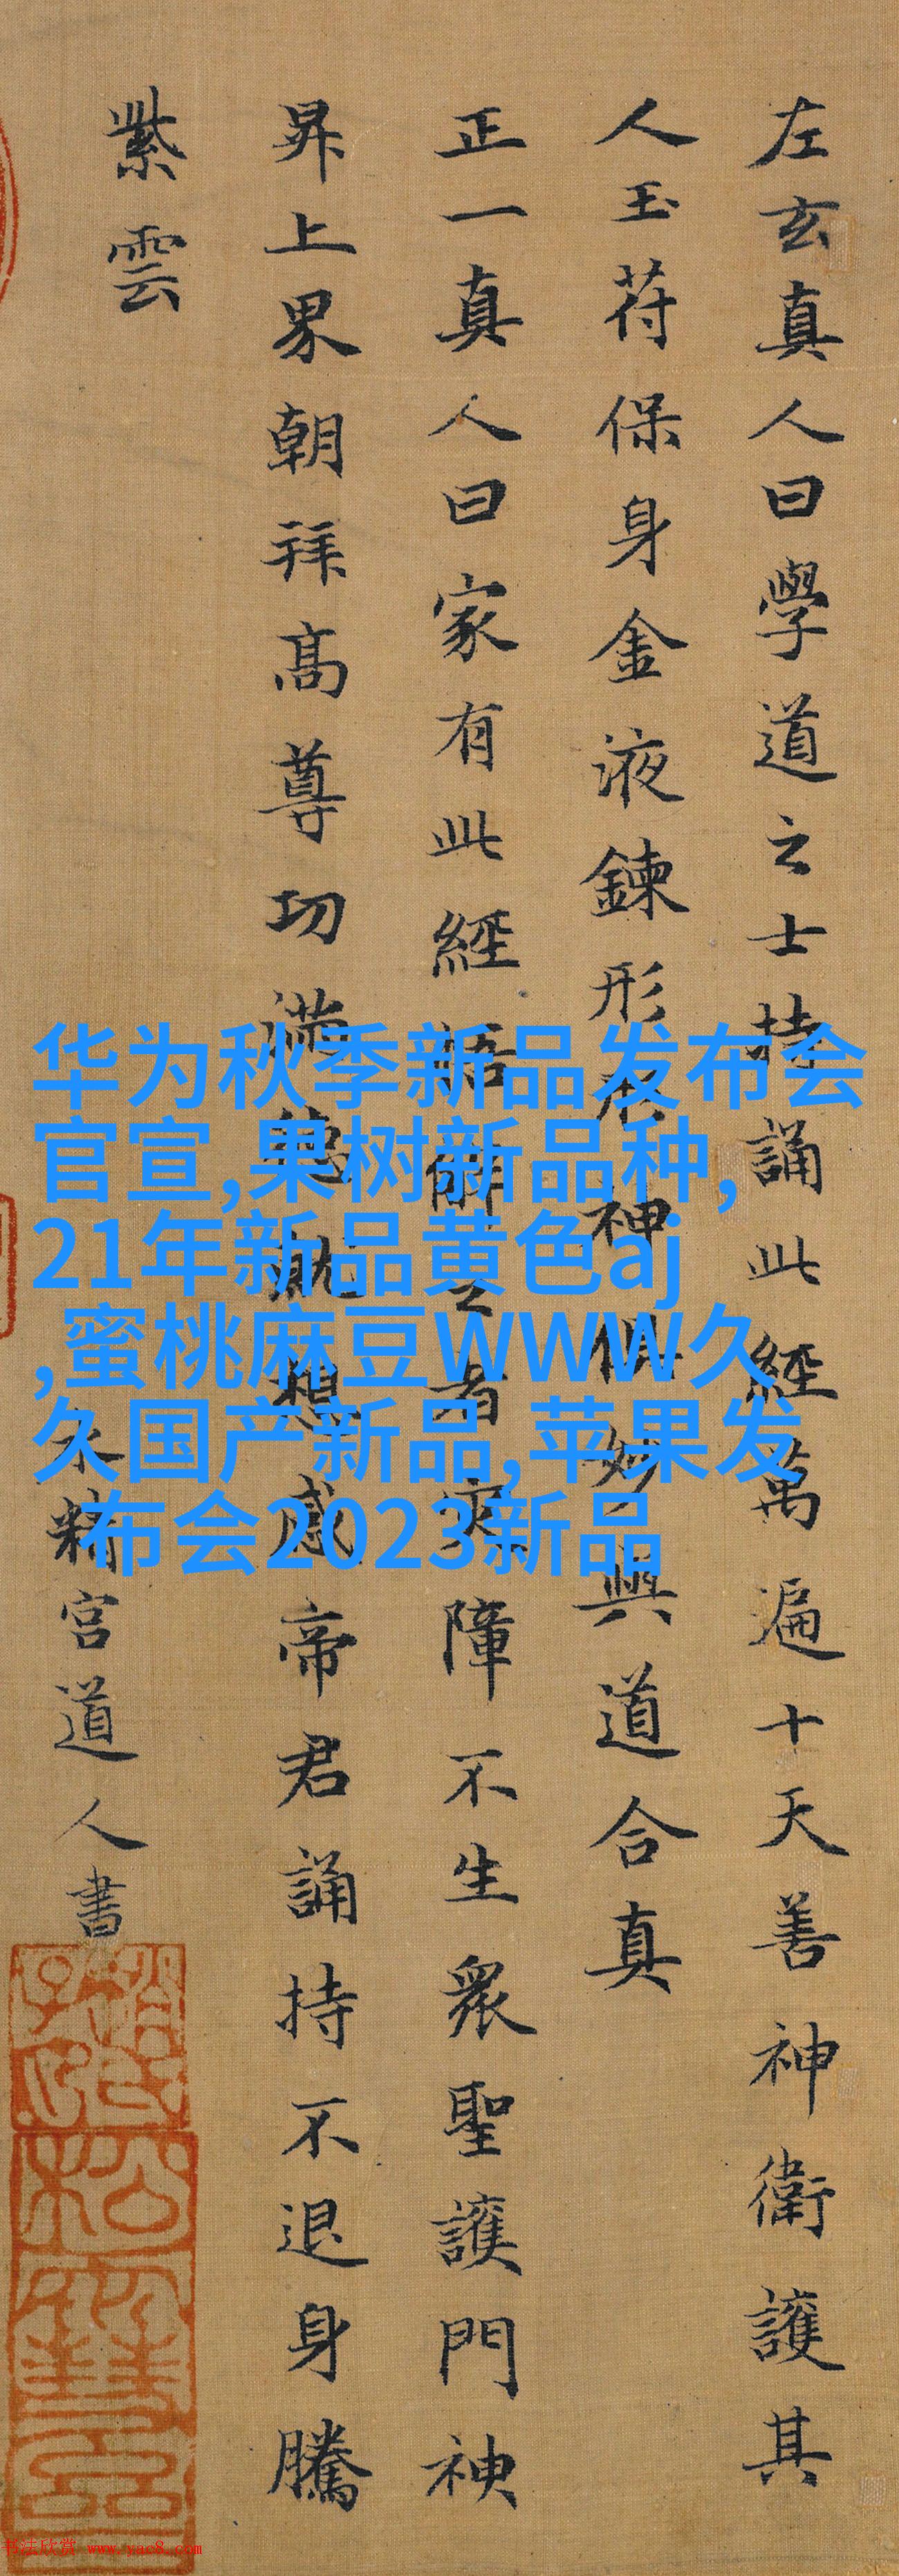 左玄真人曰學道之士持誦此經萬遍十天善神衛護其
人玉苻保身金液鍊形形神俱妙與道合真
正一真人曰家有此經悟解之者灾障不生衆聖護門神
昇上界朝拜髙尊功滿德就想感帝君誦持不退身騰
紫雲
水精宮道人書
华为秋季新品发布会
官宣,果树新品种,
21年新品黄色aj
,蜜桃麻豆WWW久
久国产新品,苹果发
布会2023新品
书法欣赏 www.yac8.com